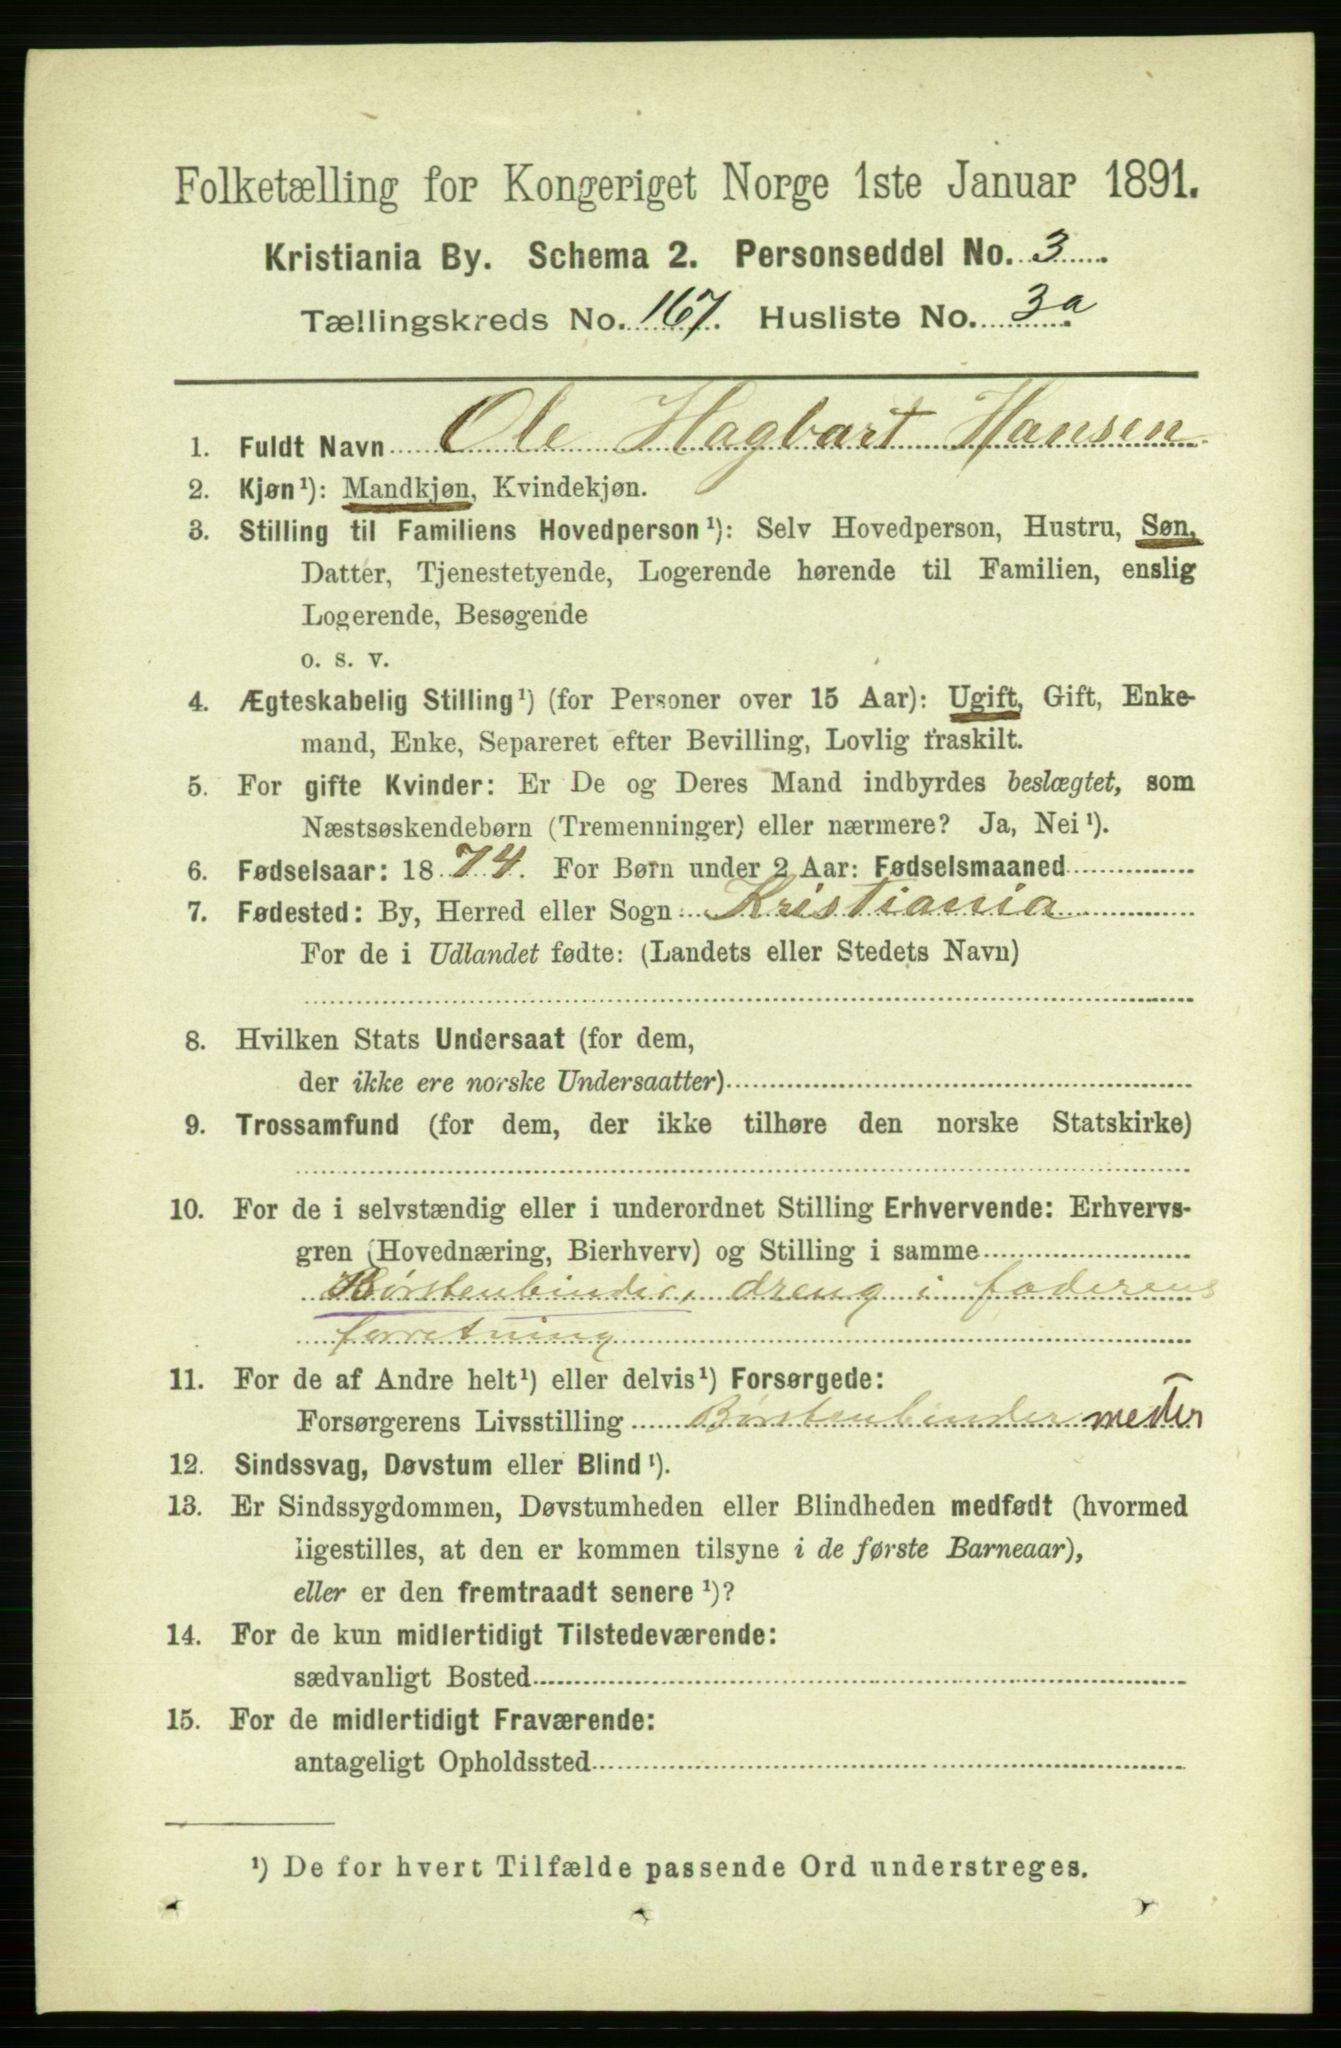 Folketælling for Kongeriget Norge 1ste Januar 1891.
Kristiania By. Schema 2. Personseddel No. 3
Tællingskreds No. 167. Husliste No. 3a
1. Fuldt Navn Ole Hagbart Hansen
2. Kjøn¹): Mandkjøn, Kvindekjøn.
3. Stilling til Familiens Hovedperson¹): Selv Hovedperson, Hustru, Søn,
Datter, Tjenestetyende, Logerende hørende til Familien, enslig
Logerende, Besøgende
o. s. v.
4. Ægteskabelig Stilling¹) (for Personer over 15 Aar): Ugift, Gift, Enke-
mand, Enke, Separeret efter Bevilling, Lovlig fraskilt.
5. For gifte Kvinder: Er De og Deres Mand indbyrdes beslægtet, som
Næstsøskendebørn (Tremenninger) eller nærmere? Ja, Nei¹).
6. Fødselsaar: 1874. For Børn under 2 Aar: Fødselsmaaned
7. Fødested: By, Herred eller Sogn Kristiania
For de i Udlandet fødte: (Landets eller Stedets Navn)
8. Hvilken Stats Undersaat (for dem,
der ikke ere norske Undersaatter)
9. Trossamfund (for dem, der ikke tilhøre den norske Statskirke)
10. For de i selvstændig eller i underordnet Stilling Erhvervende: Erhvervs-
gren (Hovednæring, Bierhverv) og Stilling i samme
Børstenbinder, dreng i faderens
forretning
11. For de af Andre helt¹) eller delvis¹) Forsørgede:
Forsørgerens Livsstilling Børstenbinder mester
12. Sindssvag, Døvstum eller Blind¹).
13. Er Sindssygdommen, Døvstumheden eller Blindheden medfødt (hvormed
ligestilles, at den er kommen tilsyne i de første Barneaar),
eller er den fremtraadt senere¹)?
14. For de kun midlertidigt Tilstedeværende:
sædvanligt Bosted
15. For de midlertidigt Fraværende:
antageligt Opholdssted
¹) De for hvert Tilfælde passende Ord understreges.